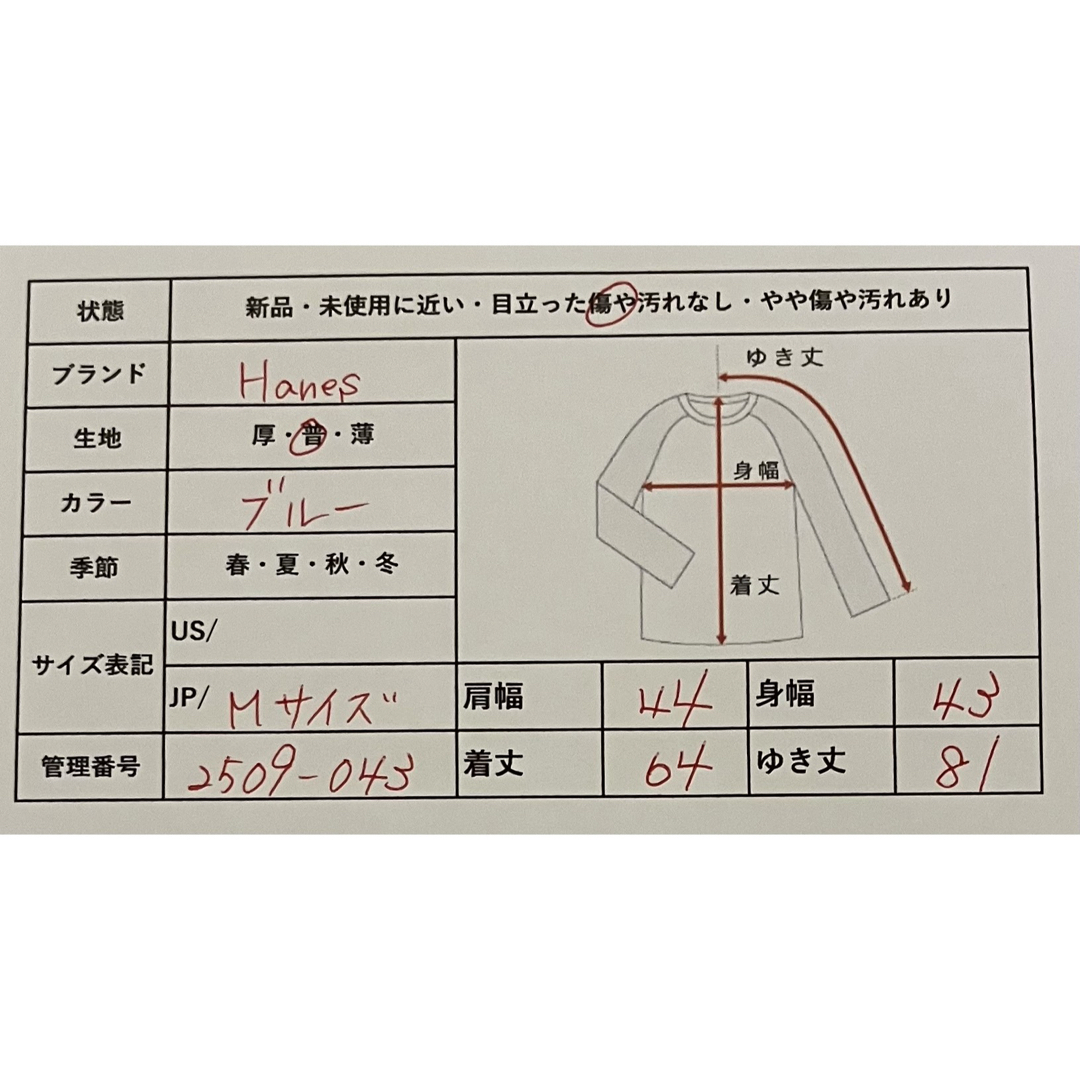 状態 新品・未使用に近い・目立った傷や汚れなし・やや傷や汚れあり
ブランド Hanes
生地 厚・普・薄
カラー ブルー
季節 春・夏・秋・冬
サイズ表記 US/
JP/ Mサイズ
管理番号 2509-043
ゆき丈
身幅
着丈
肩幅 44 身幅 43
着丈 64 ゆき丈 81